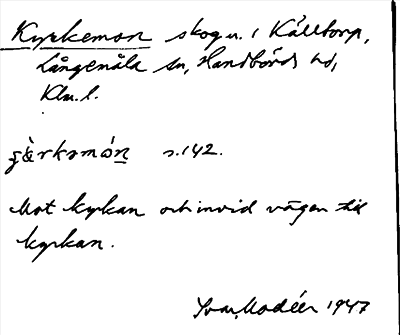 Kyrkemon skog u. i Källtorp,
Långemåla sn, Handbörds hd,
Klm. l.
s. 142.
Mot kyrkan och invid vägen till
kyrkan.
Ivar Modéer 1947